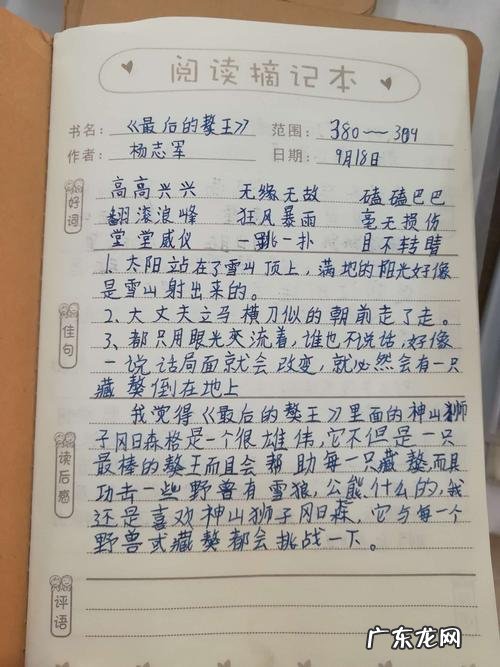 阅读摘记本
书名：《最后的獒王》 范围：380—384
作者：杨志军 日期：9月18日
好词
高高兴兴 无缘无故 磕磕巴巴
翻滚浪峰 狂风暴雨 毫无损伤
堂堂威仪 一跳一扑 目不转睛
佳句
1、太阳站在了雪山顶上，满地的阳光好像
是雪山射出来的。
2、大丈夫立马横刀似的朝前走了走。
3、都只用眼光交流着，谁也不说话，好像
一说话局面就会改变，就必然会有一只
藏獒倒在地上
读后感
我觉得《最后的獒王》里面的神山狮
子冈日森格是一个很雄伟，它不但是一只
最棒的獒王而且会帮助每一只藏獒，而且
功击一些野兽有雪狼，公熊什么的，我
还是喜欢神山狮子冈日森，它与每一个
野兽或藏獒都会挑战一下。
评语
广东龙网